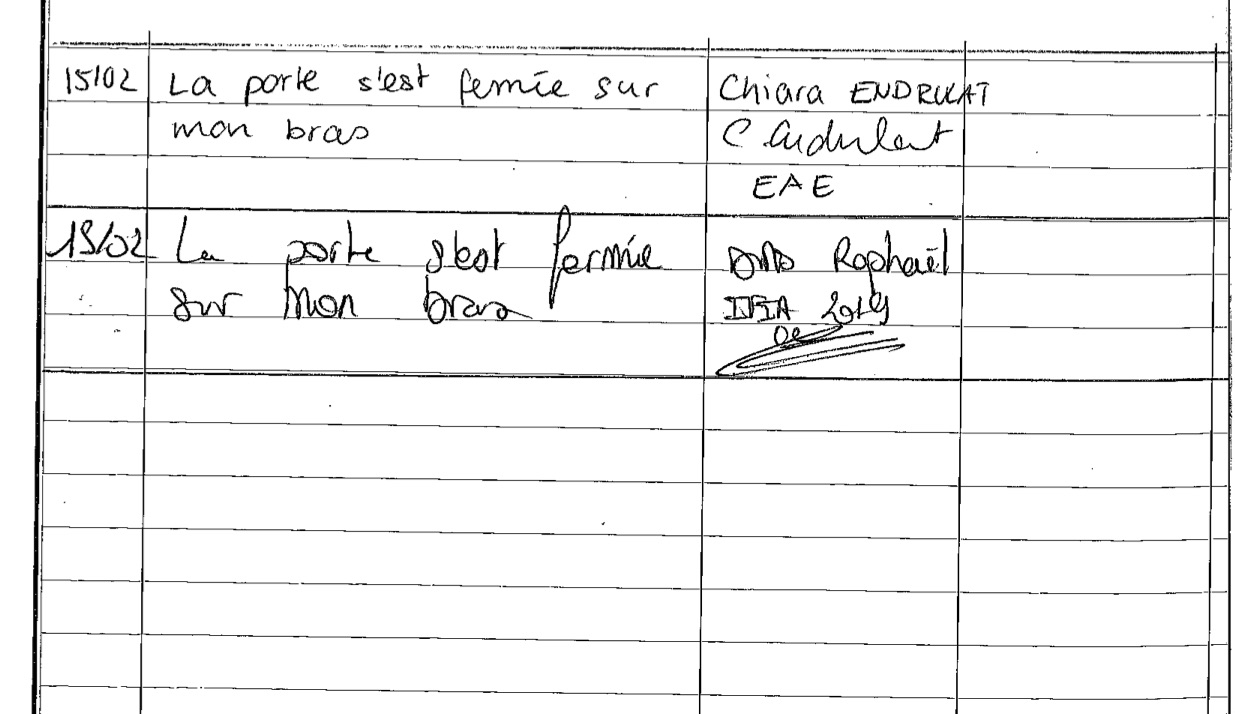 15/02 La porte s'est fermée sur Chiara ENDRULAT
mon bras C Endrulat
EAE
La porte s'est fermée Raphaël
sur mon bras 2019